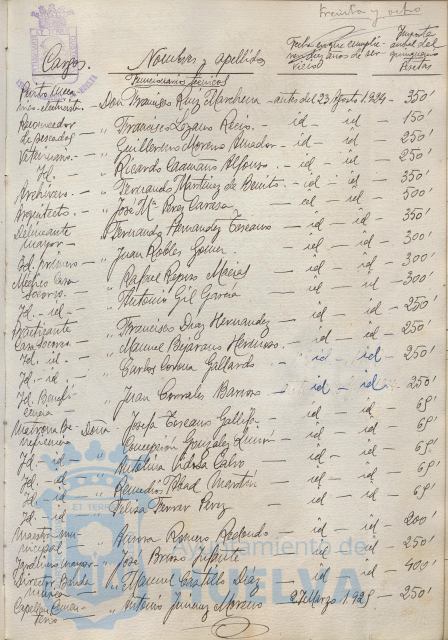 Treinta y ocho
Cargos. Nombres y apellidos Fecha en que cumplie- Importe
ron diez años de ser- anual del
vicios quinquenio
Pesetas
Funcionarios técnicos
Don Francisco Ruiz Marchena - antes del 23 Agosto 1.924 - 350'
Reconocedor
de pescados - " Francisco Lozano Recio. - id - id - 150'
Veterinario. - " Guillermo Moreno Amador - id - id - 250'
Id. - " Ricardo Caamaño Alfonso. - id - id - 250'
Archivero. - " Fernando Martinez de Benito. - id - id - 350'
Arquitecto. - " José Mª Perez Carasa - id - id - 500'
Delineante
mayor - " Fernando Hernandez Toscano - id - id - 350'
Id. primero - " Juan Robles Gomez - id - id - 300'
Médico Casa
Socorro. - " Rafael Repiso Macias - id - id - 300'
Id. - id - " Antonio Gil Garcia - id - id - 300'
Practicante
Casa Socorro. - " Francisco Diaz Hernandez - id - id - 250'
Id. id. - " Manuel Bejarano Hermoso. - id - id - 250'
Id - id - " Carlos Corona Gallardo - id - id - 250'
Id. Benefi-
cencia - " Juan Corrales Barroso - id - id - 250'
Matrona Be-
neficencia - Doña Josefa Toscano Gallego - id - id - 69'
Id. - id - " Concepción Gonzalez - id - id - 69'
Id. - id - " Antonina Calvo - id - id - 69'
Id - id - " Remedios Abad - id - id - 69'
Id - id - " Felisa Ferrer Perez - id - id - 69'
Maestro mu-
nicipal - " Romero Redondo - id - id - 200'
" José Infante - id - id - 250'
Director Banda
música - " Manuel Castillo Diaz - id - id - 400'
Capellan Cemen-
terio - " Antonio Jimenez Moreno 2 Marzo 1.925 - 250'
Ayuntamiento de
HUELVA